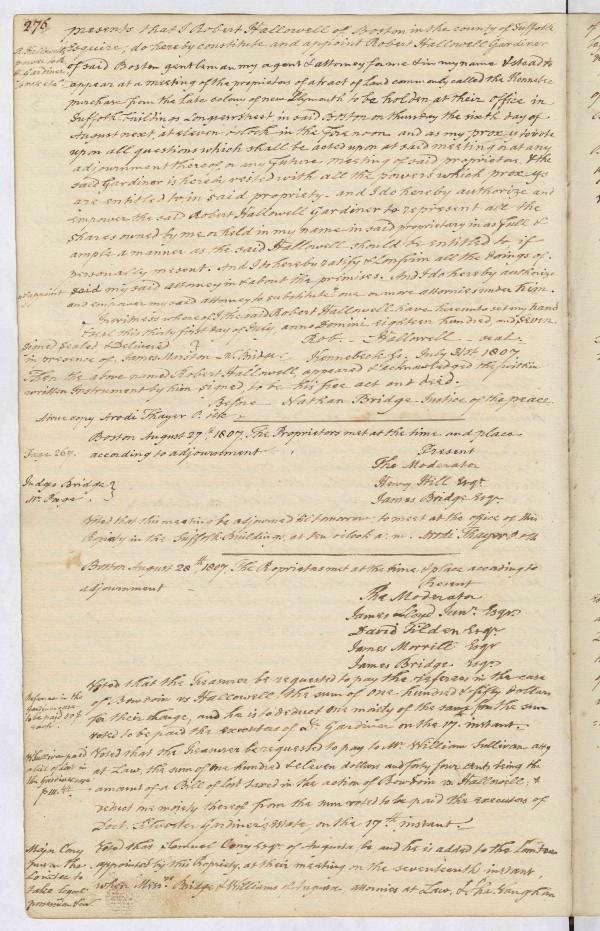 276
presents that I Robert Hallowell of Boston in the county of Suffolk
Esquire, do hereby constitute and appoint Robert Hallowell Gardiner
of said Boston gentleman my agent & attorney for me & in my name & stead to
appear at a meeting of the proprietors of a tract of Land commonly called the Kennebec
purchase from the late colony of new Plymouth to be holden at their office in
Suffolk Buildings Congress street in said Boston on thursday the sixth day of
August next, at eleven o'clock in the forenoon and as my proxy to vote
upon all questions which shall be acted upon at said meeting or at any
adjournment thereof, or any future meeting of said proprietors. & the
said Gardiner is hereby vested with all the powers which proxys
are entitled to in said propriety. and I do hereby authorize and
empower the said Robert Hallowell Gardiner to represent all the
shares owned by me or held in my name in said propriety in as full &
ample a manner as the said Hallowell should be entitled to if
personally present. And I do hereby ratify & confirm all the doings of
said my said attorney in & about the premises. And I do hereby authorize
and empower my said attorney to substitute one or more attornies under him.
In witness whereof I the said Robert Hallowell have hereunto set my hand
& seal this thirty first day of July, anno Domini eighteen hundred, and seven
Signed Sealed & Delivered } Rob. Hallowell seal.
in presence of, James Bridge Kennebeck ss. July 31st 1807
Then the above named Robert Hallowell appeared & acknowledged the within
written Instrument by him signed to be his free act and deed.
Before Nathan Bridge Justice of the peace.
A true copy Arodi Thayer P. Clk
Boston August 27th. 1807. The Proprietors met at the time and place
according to adjournment
Page 267.
Present
The Moderator
Judge Bridge }
Henry Hill Esqr.
James Bridge Esqr.
Voted that this meeting be adjourned till tomorrow, to meet at the office of this
Propriety in the Suffolk Buildings, at ten o'clock a. m. Arodi Thayer P. Clk
Boston August 28th. 1807. The Proprietors met at the time & place according to
adjournment
Present
The Moderator
James Lloyd Junr. Esqr.
David Tilden Esqr.
James Morrill Esqr
James Bridge Esqr.
Referees in the
Voted that the Treasurer be requested to pay the referees in the case
of Bowdoin vs Hallowell the sum of one hundred & fifty dollars
for their charge, and he is to deduct one moiety of the same from the sum
voted to be paid the executors of Dr. Gardiner on the 17th. instant.
Voted that the Treasurer be requested to pay to Mr. William Sullivan atty
at Law, the sum of one hundred & eleven dollars and forty four cents, being the
amount of a Bill of Cost taxed in the action of Bowdoin vs Hallowell; &
deduct one moiety thereof from the sum voted to be paid the executors of
Doct. Silvester Gardiner's Estate, on the 17th instant.
Major Cony
Voted that Samuel Cony Esqr. of Augusta be and he is added to the Comittee
appointed by this Propriety, at their meeting on the seventeenth instant,
Comitee to
when Messrs. Bridge & Williams of Augusta, attornies at Law, & Cha. Vaughan